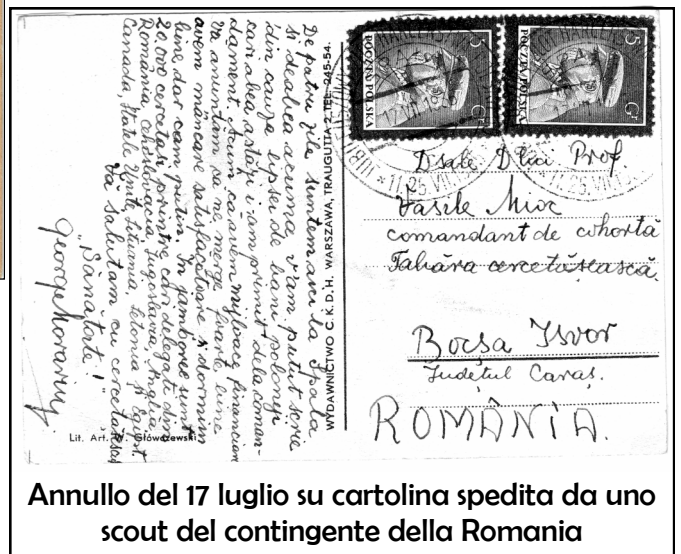 De patru zile suntem aici la Spala
și deabea acuma v'am putut scrie
din cauza lipsei de bani polonezi
cari abea astăzi i-am primit dela coman-
dament. Acum că avem mijloace financiare
vă anunțăm că ne merge foarte bine
avem mâncare satisfăcătoare și dormim
bine, dar cam puțin. În jamboree sunt
20.000 cercetași printre cari delegați din
România, Cehoslovacia, Jugoslavia, Anglia
Canada, Statele Unite, Lituania, Letonia și Egipt
Vă salutăm cu cercetășescul
"Sănătate!"
George Morariu
Lit. Art. W. Główczewski
WYDAWNICTWO C. K. D. H. WARSZAWA, TRAUGUTTA 2. TEL. 245-54.
5 Gr
POCZTA POLSKA
5 Gr
POCZTA POLSKA
Dsale Dlui Prof
Vasile Mioc
comandant de cohortă
Tabăra cercetășească
Bocșa Isvor
Județul Caraș.
ROMÂNIA.
Annullo del 17 luglio su cartolina spedita da uno
scout del contingente della Romania